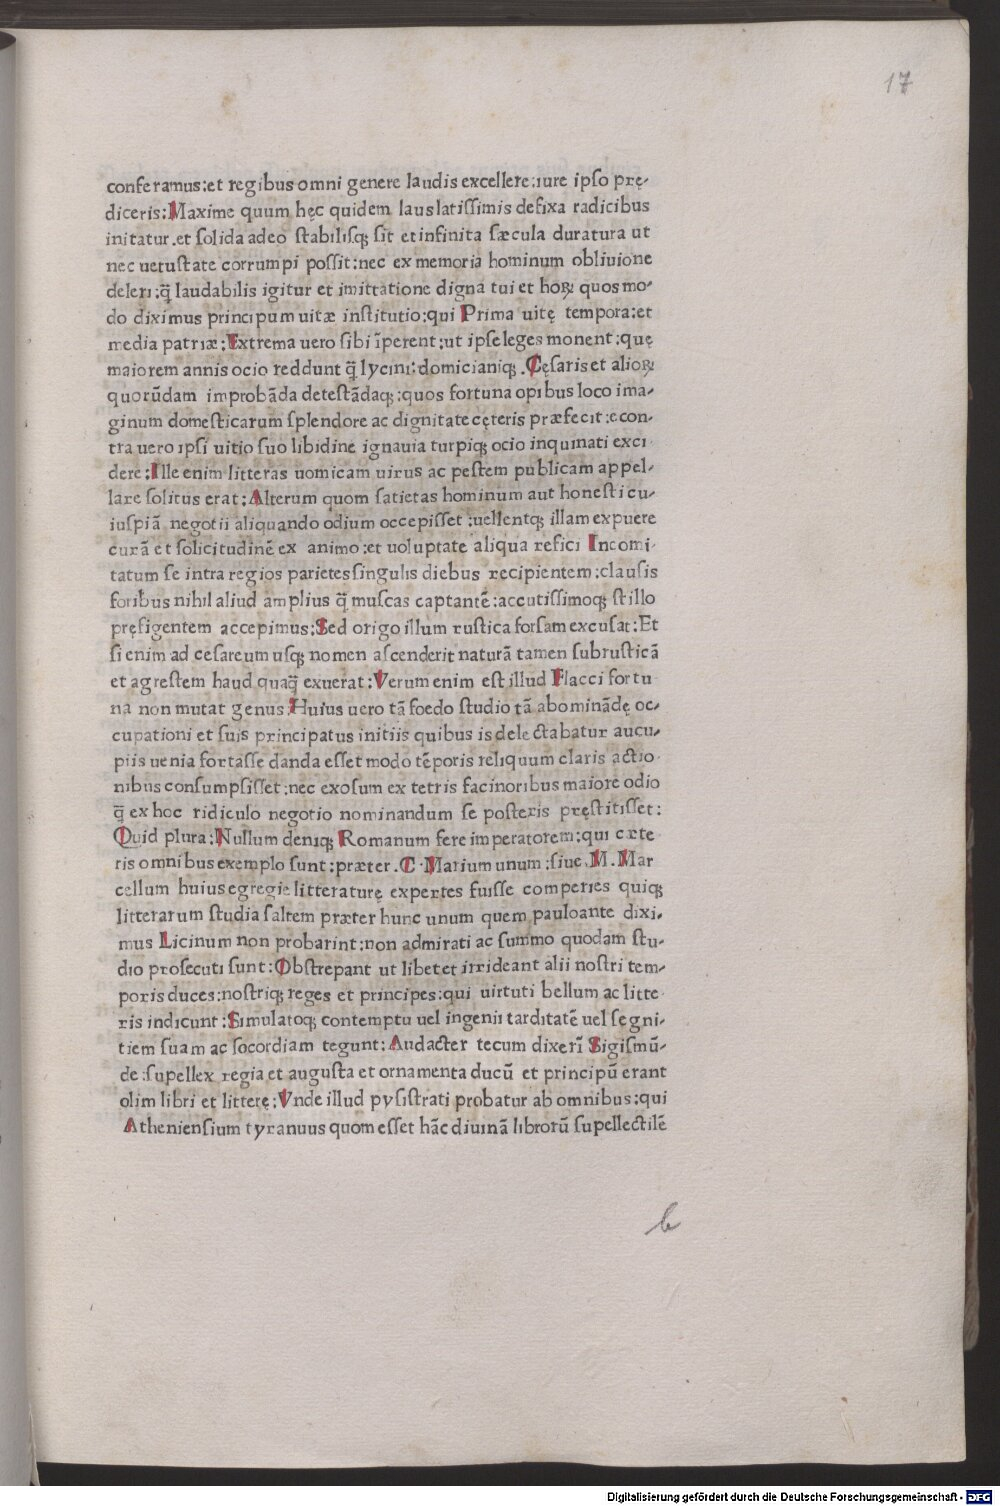 17
conferamus:et regibus omni genere laudis excellere:iure ipso prę-
diceris:Maxime quum hęc quidem laus latissimis defixa radicibus
initatur.et solida adeo stabilisqꝫ sit et infinita sæcula duratura ut
nec uetustate corrumpi possit:nec ex memoria hominum obliuione
deleri:q̄ laudabilis igitur et imittatione digna tui et hoꝝ quos mo-
do diximus principum uitæ institutio:qui Prima uitę tempora:et
media patriæ:Extrema uero sibi īperent:ut ipse leges monent:quę
maiorem annis ocio reddunt q̄ lycini:domicianiqꝫ.Cęsaris et alioꝝ
quorūdam improbāda detestādaqꝫ:quos fortuna opibus loco ima-
ginum domesticarum splendore ac dignitate cęteris præfecit:econ-
tra uero ipsi uitio suo libidine ignauia turpiqꝫ ocio inquinati exci
dere:Ille enim litteras uomicam uirus ac pestem publicam appel-
lare solitus erat:Alterum quom satietas hominum aut honesti cu-
iuspiā negotii aliquando odium occepisset:uellentqꝫ illam expuere
curā et solicitudinē ex animo:et uoluptate aliqua refici Incomi-
tatum se intra regios parietes singulis diebus recipientem:clausis
foribus nihil aliud amplius q̄ muscas captantē:accutissimoqꝫ stillo
pręfigentem accepimus:Sed origo illum rustica forsam excusat:Et
si enim ad cesareum usqꝫ nomen ascenderit naturā tamen subrusticā
et agrestem haud quaq̄ exuerat:Verum enim est illud Flacci fortu
na non mutat genus:Huius uero tā foedo studio tā abominādę oc-
cupationi et suis principatus initiis quibus is delectabatur aucu-
piis uenia fortasse danda esset modo tēporis reliquum claris actio
nibus consumpsisset:nec exosum ex tetris facinoribus maiore odio
q̄ ex hoc ridiculo negotio nominandum se posteris pręstitisset:
Quid plura:Nullum deniqꝫ Romanum fere imperatorem:qui cæte
ris omnibus exemplo sunt:præter.C.Marium unum:siue.M.Mar
cellum huius egregie litteraturę expertes fuisse comperies quiqꝫ
litterarum studia saltem præter hunc unum quem pauloante dixi-
mus Licinum non probarint:non admirati ac summo quodam stu-
dio prosecuti sunt:Obstrepant ut libet et irrideant alii nostri tem-
poris duces:nostriqꝫ reges et principes:qui uirtuti bellum ac litte
ris indicunt:Simulatoqꝫ contemptu uel ingenii tarditatē uel segni-
tiem suam ac socordiam tegunt:Audacter tecum dixerī Sigismū-
de:supellex regia et augusta et ornamenta ducū et principū erant
olim libri et litterę:Vnde illud pysistrati probatur ab omnibus:qui
Atheniensium tyranuus quom esset hāc diuinā librorū supellectilē
b
Digitalisierung gefördert durch die Deutsche Forschungsgemeinschaft - DFG